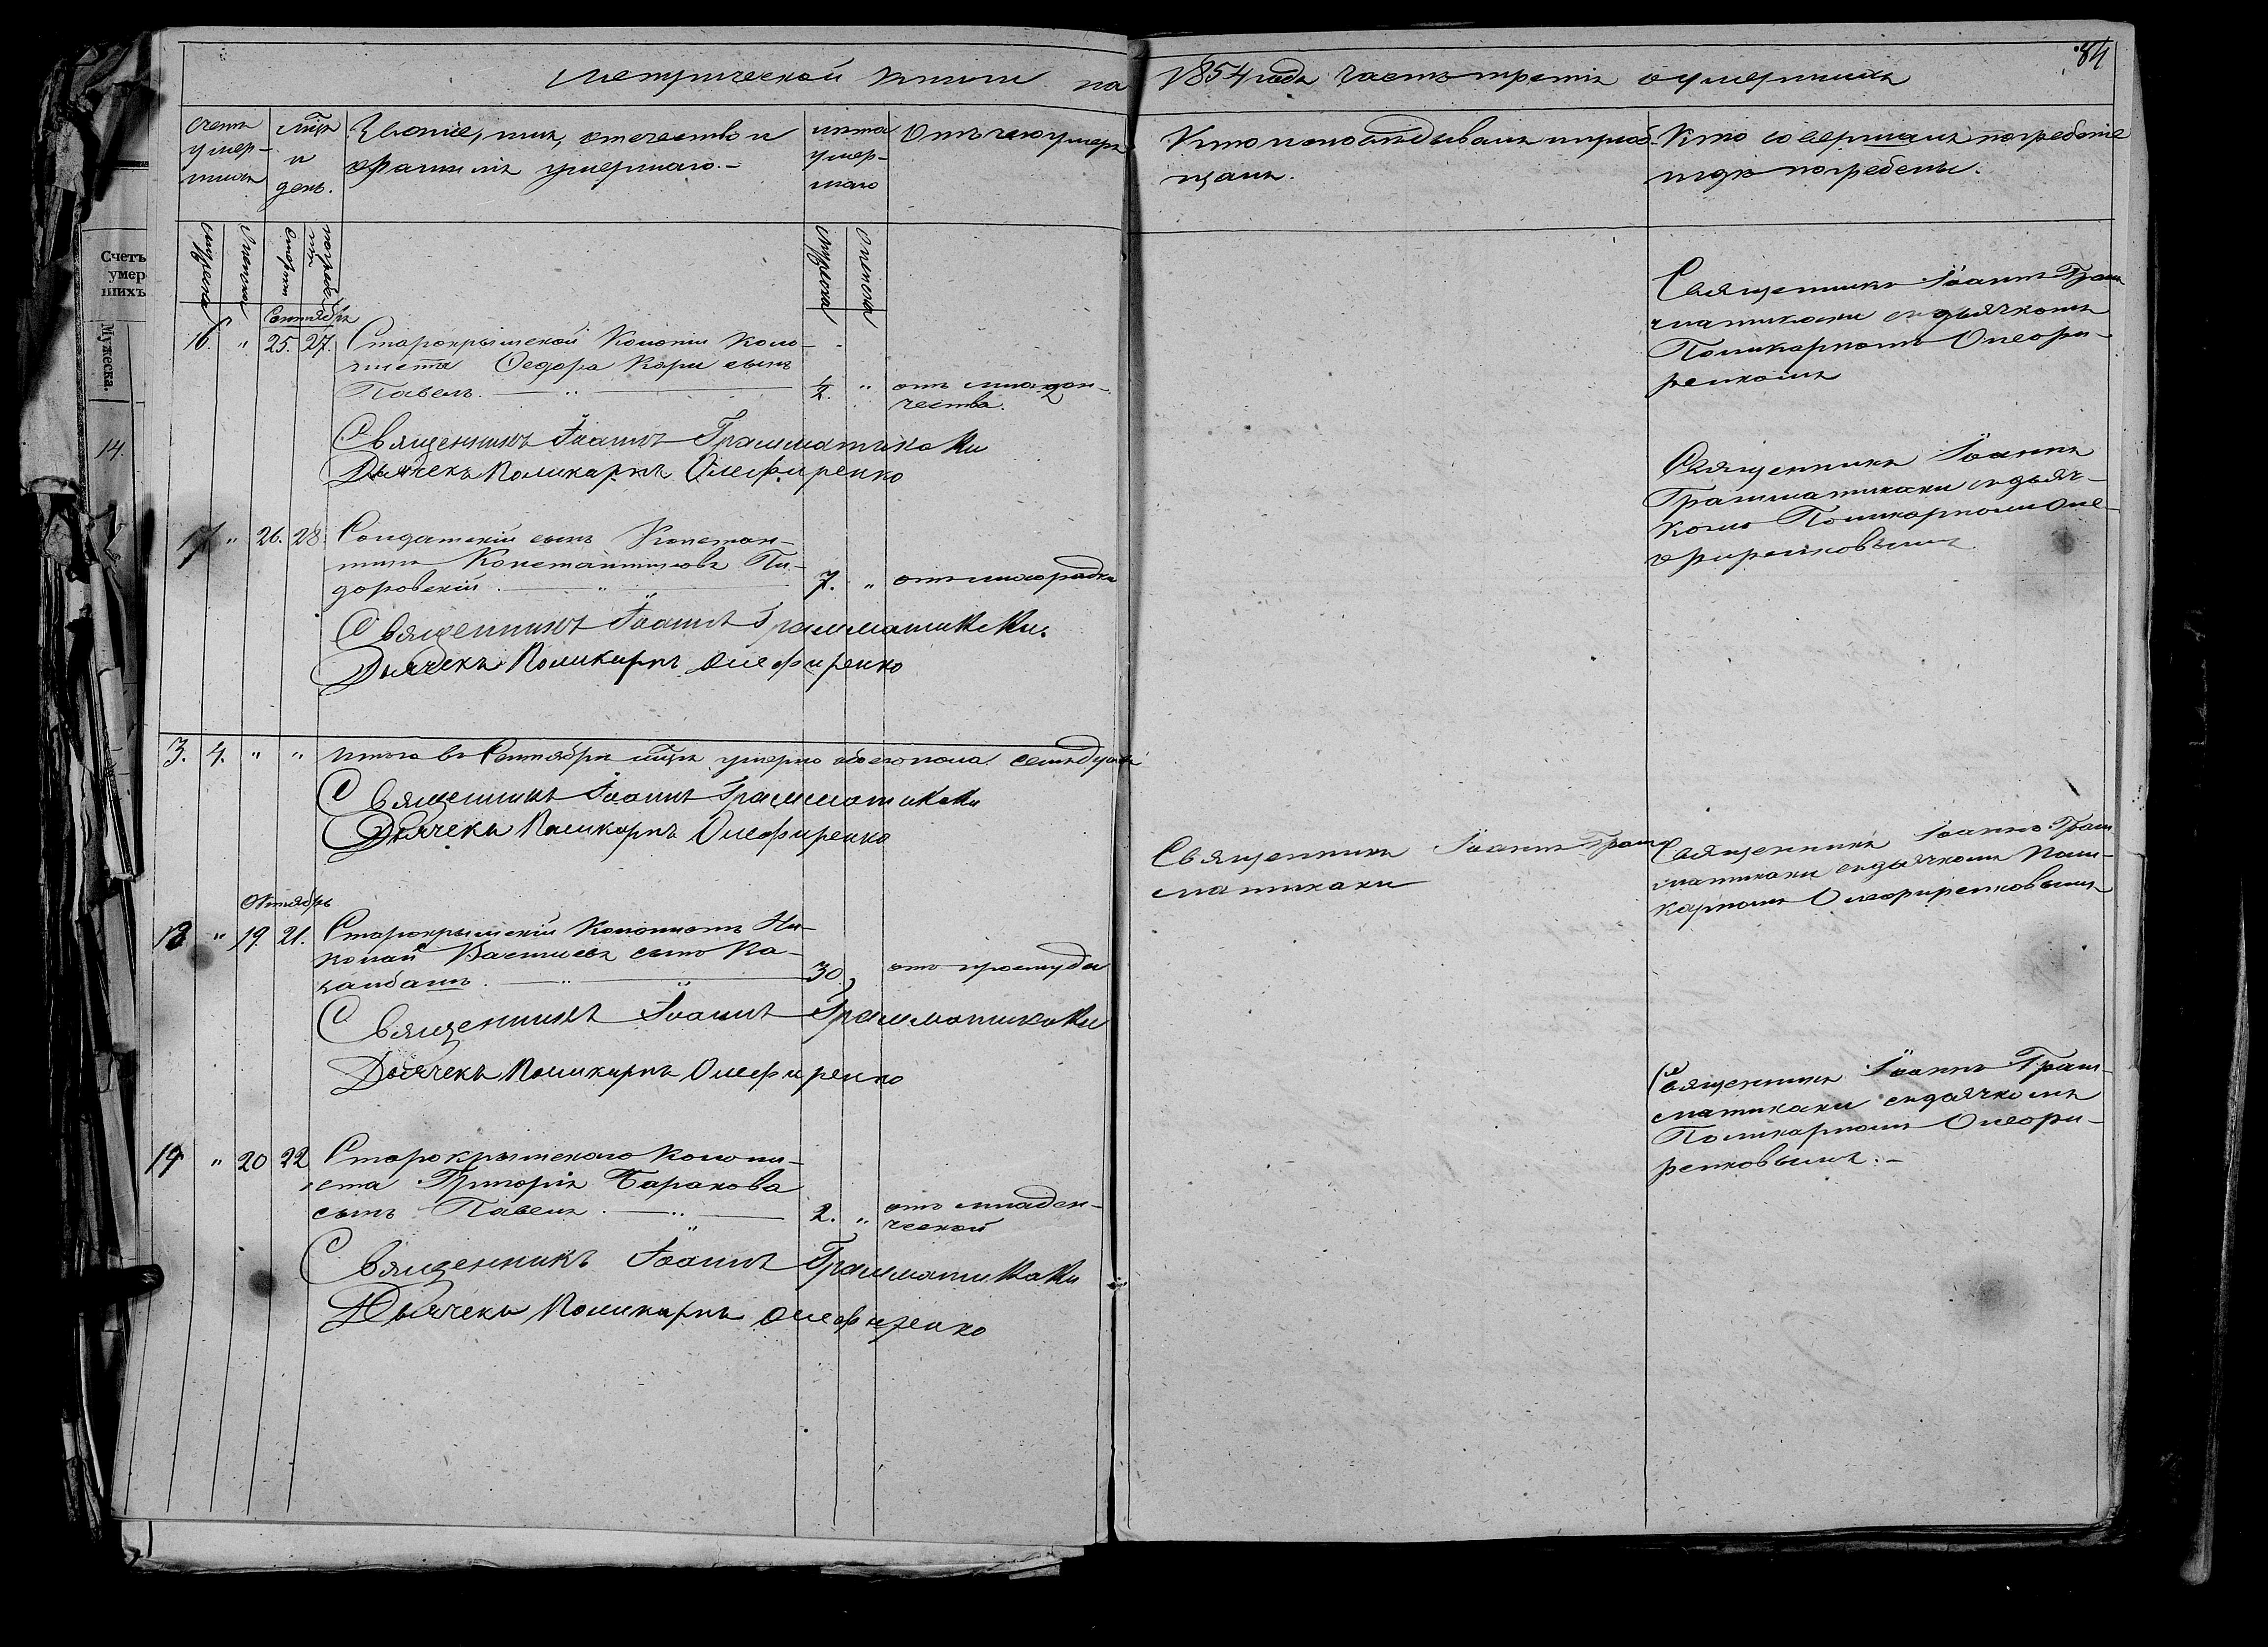 84
Метрической книги на 1854 года часть третія о умершихъ
Счетъ умер-
шихъ
Мѣца
и
день.
Званіе, имя, отечество и
фамилія умершаго.-
лѣта
умер-
шаго
Отъ чего умеръ
Кто исповѣдывалъ и пріоб-
щалъ.
Кто совершалъ погребеніе
и гдѣ погребены.
мужеска
женска
смерти
погребенія
мужеска
женска
Сентябрь
16. " 25. 27. Старокрымской Колоніи коло-
ниста Ѳедора Кори сынъ
Павелъ. 2. " отъ младен-
чества.
Священникъ Іоаннъ Грам-
матикаки съ дьячкомъ
Поликарпомъ Олефи-
ренкомъ
Священникъ Іоаннъ Грамматикаки
Дьячекъ Поликарпъ Олефиренко
17 " 26. 28. Солдатскій сынъ Констан-
тинъ Константиновъ
доровскій. 7. " отъ лихорадки
Священникъ Іоаннъ
Грамматикаки съ дьяч-
комъ Поликарпомъ Оле-
фиренковымъ
Священникъ Іоаннъ Грамматикаки.
Дьячекъ Поликарпъ Олефиренко
3. 4. " " Итого въ Сентябрѣ мѣцѣ умерло обоего пола семь душъ
Священникъ Іоаннъ Грамматикаки
Дьячекъ Поликарпъ Олефиренко
Октябрь
18 " 19. 21. Старокрымскій Колонистъ Ни-
колай Васильевъ сынъ
30 отъ простуды
Священникъ Іоаннъ Грам-
матикаки
Священникъ Іоаннъ Грам-
матикаки съ дьячкомъ Поли-
карпомъ Олефиренковымъ
Священникъ Іоаннъ Грамматикаки
Дьячекъ Поликарпъ Олефиренко
19 " 20 22 Старокрымскаго колони-
ста Григорія Баракова
сынъ Павелъ. 2. " отъ младен-
ческой
Священникъ Іоаннъ Грам-
матикаки съ дьячкомъ
Поликарпомъ Олефи-
ренковымъ.-
Священникъ Іоаннъ Грамматикаки
Дьячекъ Поликарпъ Олефиренко
Счетъ
умер
шихъ
Мужеска.
14